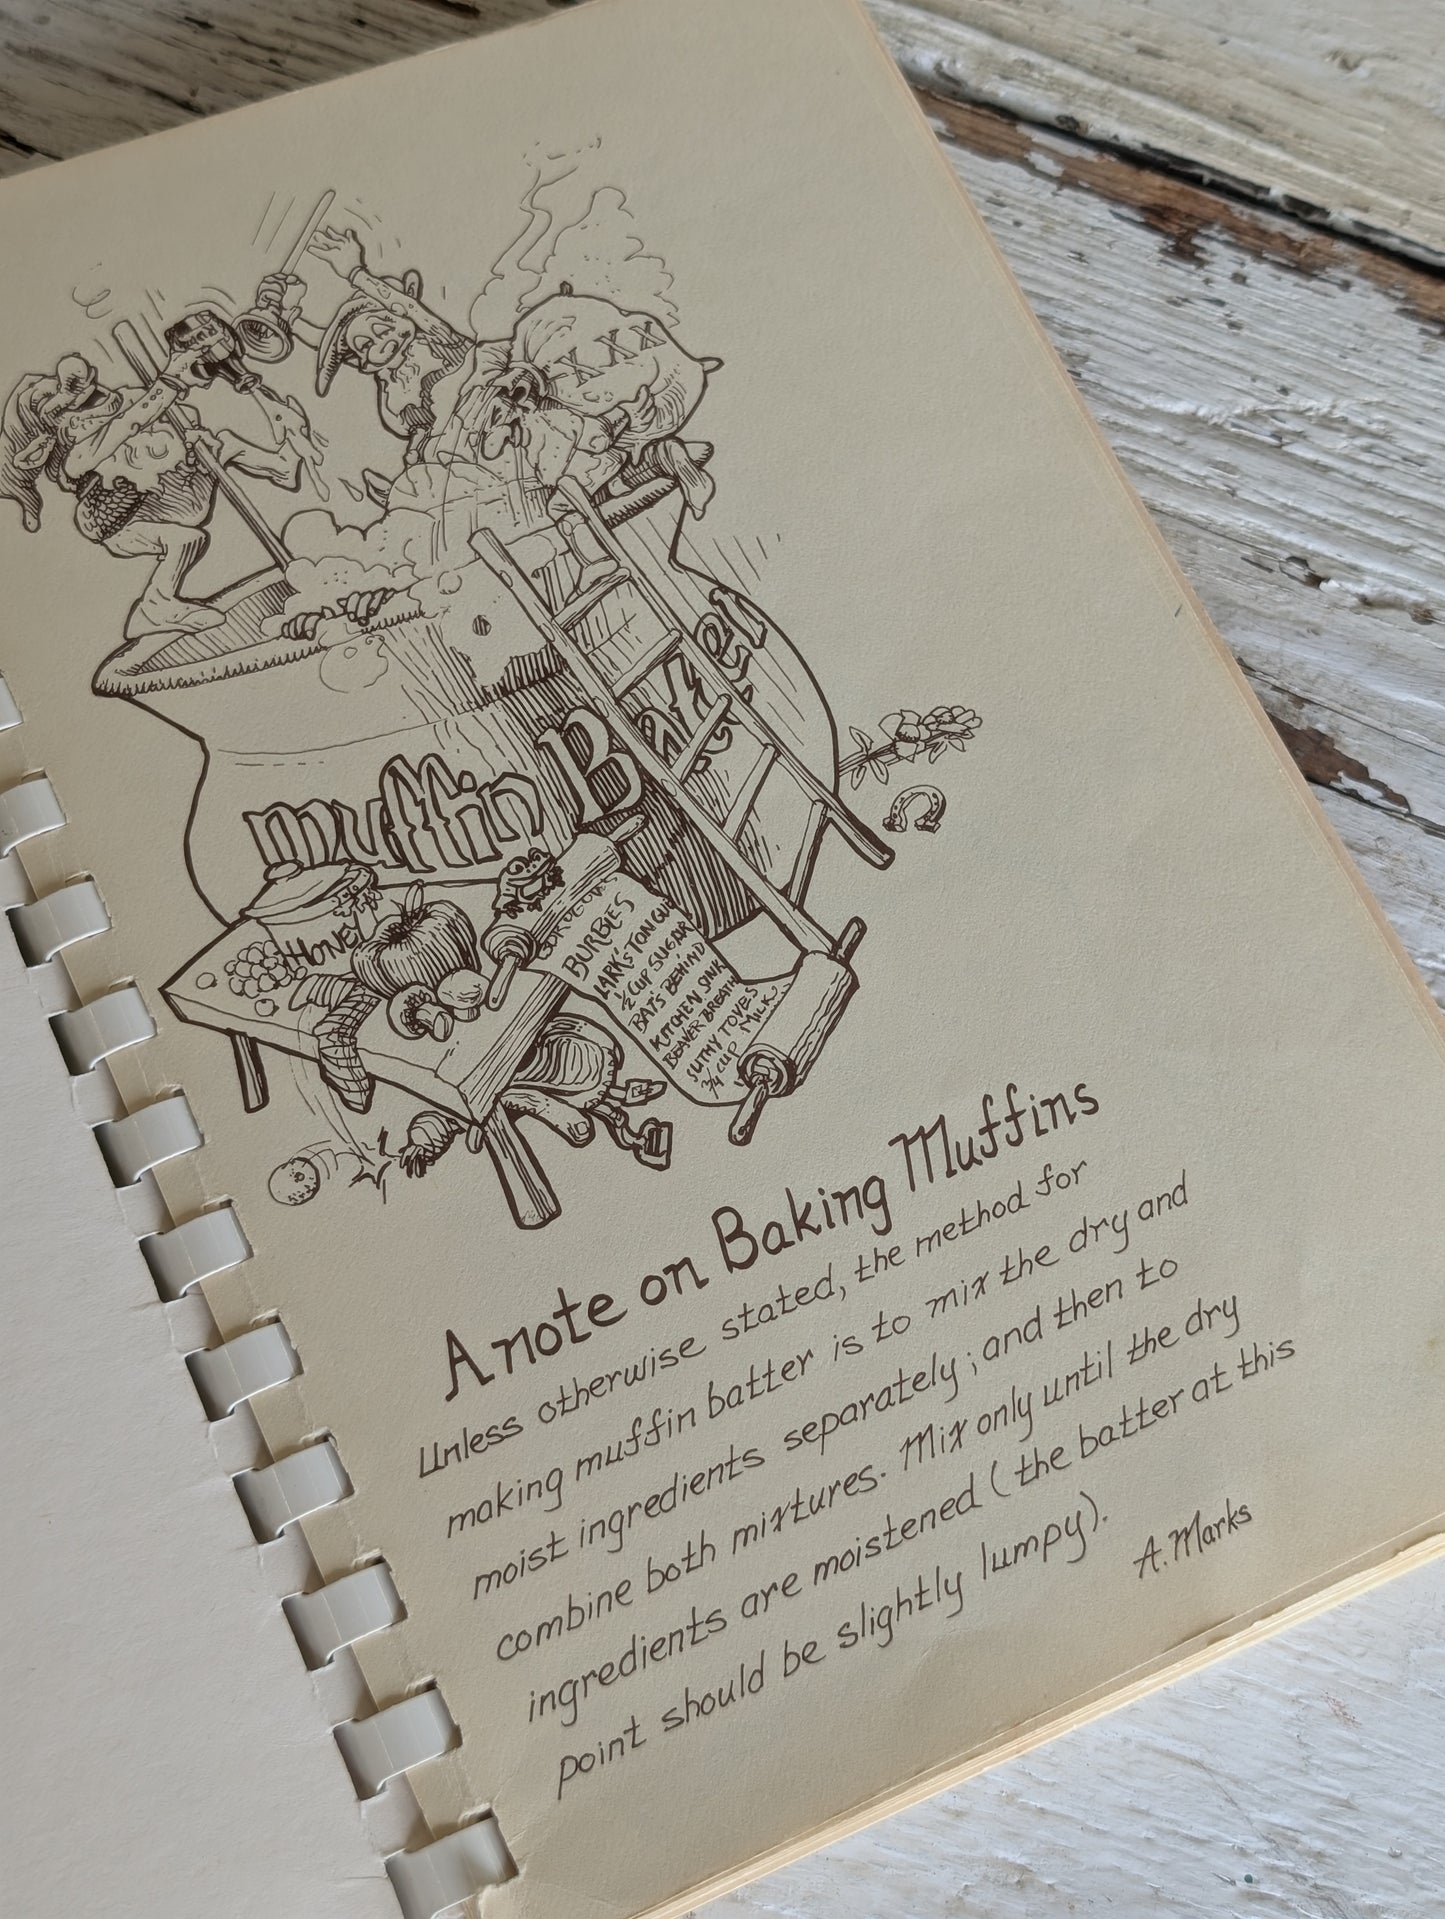 RUM
XXX
muffin Batter
HONEY
BOROGOVES
BURBLES
LARK'S TONGUE
½ CUP SUGAR
BAT'S BEHIND
KITCHEN SINK
BEAVER BREATH
SLITHY TOVES
¾ CUP MILK
A note on Baking Muffins
Unless otherwise stated, the method for
making muffin batter is to mix the dry and
moist ingredients separately; and then to
combine both mixtures. Mix only until the dry
ingredients are moistened (the batter at this
point should be slightly lumpy).
A. Marks